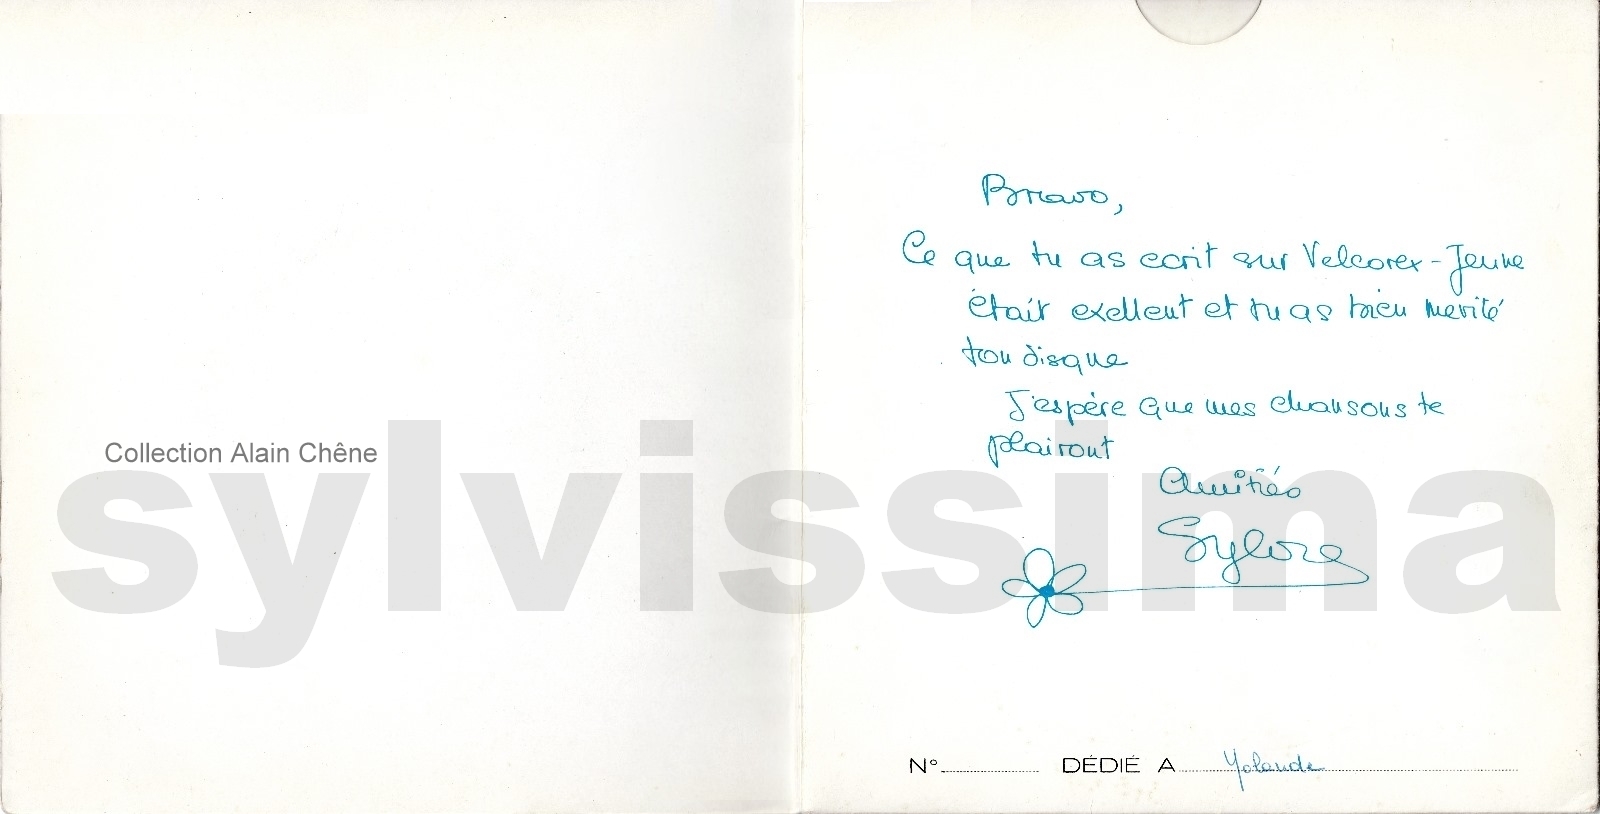 Bravo,
Ce que tu as ecrit sur Velcorex-Jeune
était exellent et tu as bien mérité
ton disque
J'espère que mes chansons te
plairont
Amitiés
Sylvie
Collection Alain Chêne
sylvissima
N° DÉDIÉ A Yolande